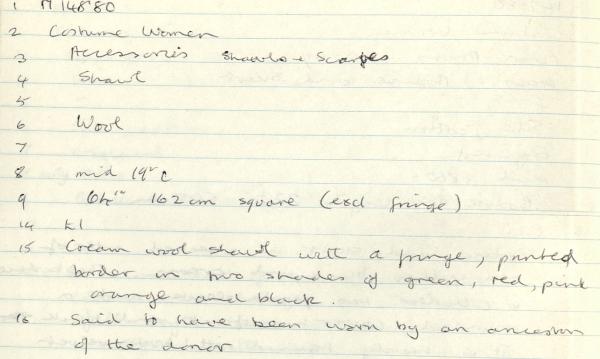 1 M 148'80
2 Costume Women
3 Accessories Shawls + Scarves
4 Shawl
5
6 Wool
7
8 mid 19th C
9 64" 162 cm square (excl fringe)
14 £1
15 Cream wool shawl with a fringe, printed
border in two shades of green, red, pink
orange and black.
16 Said to have been worn by an ancestor
of the donor